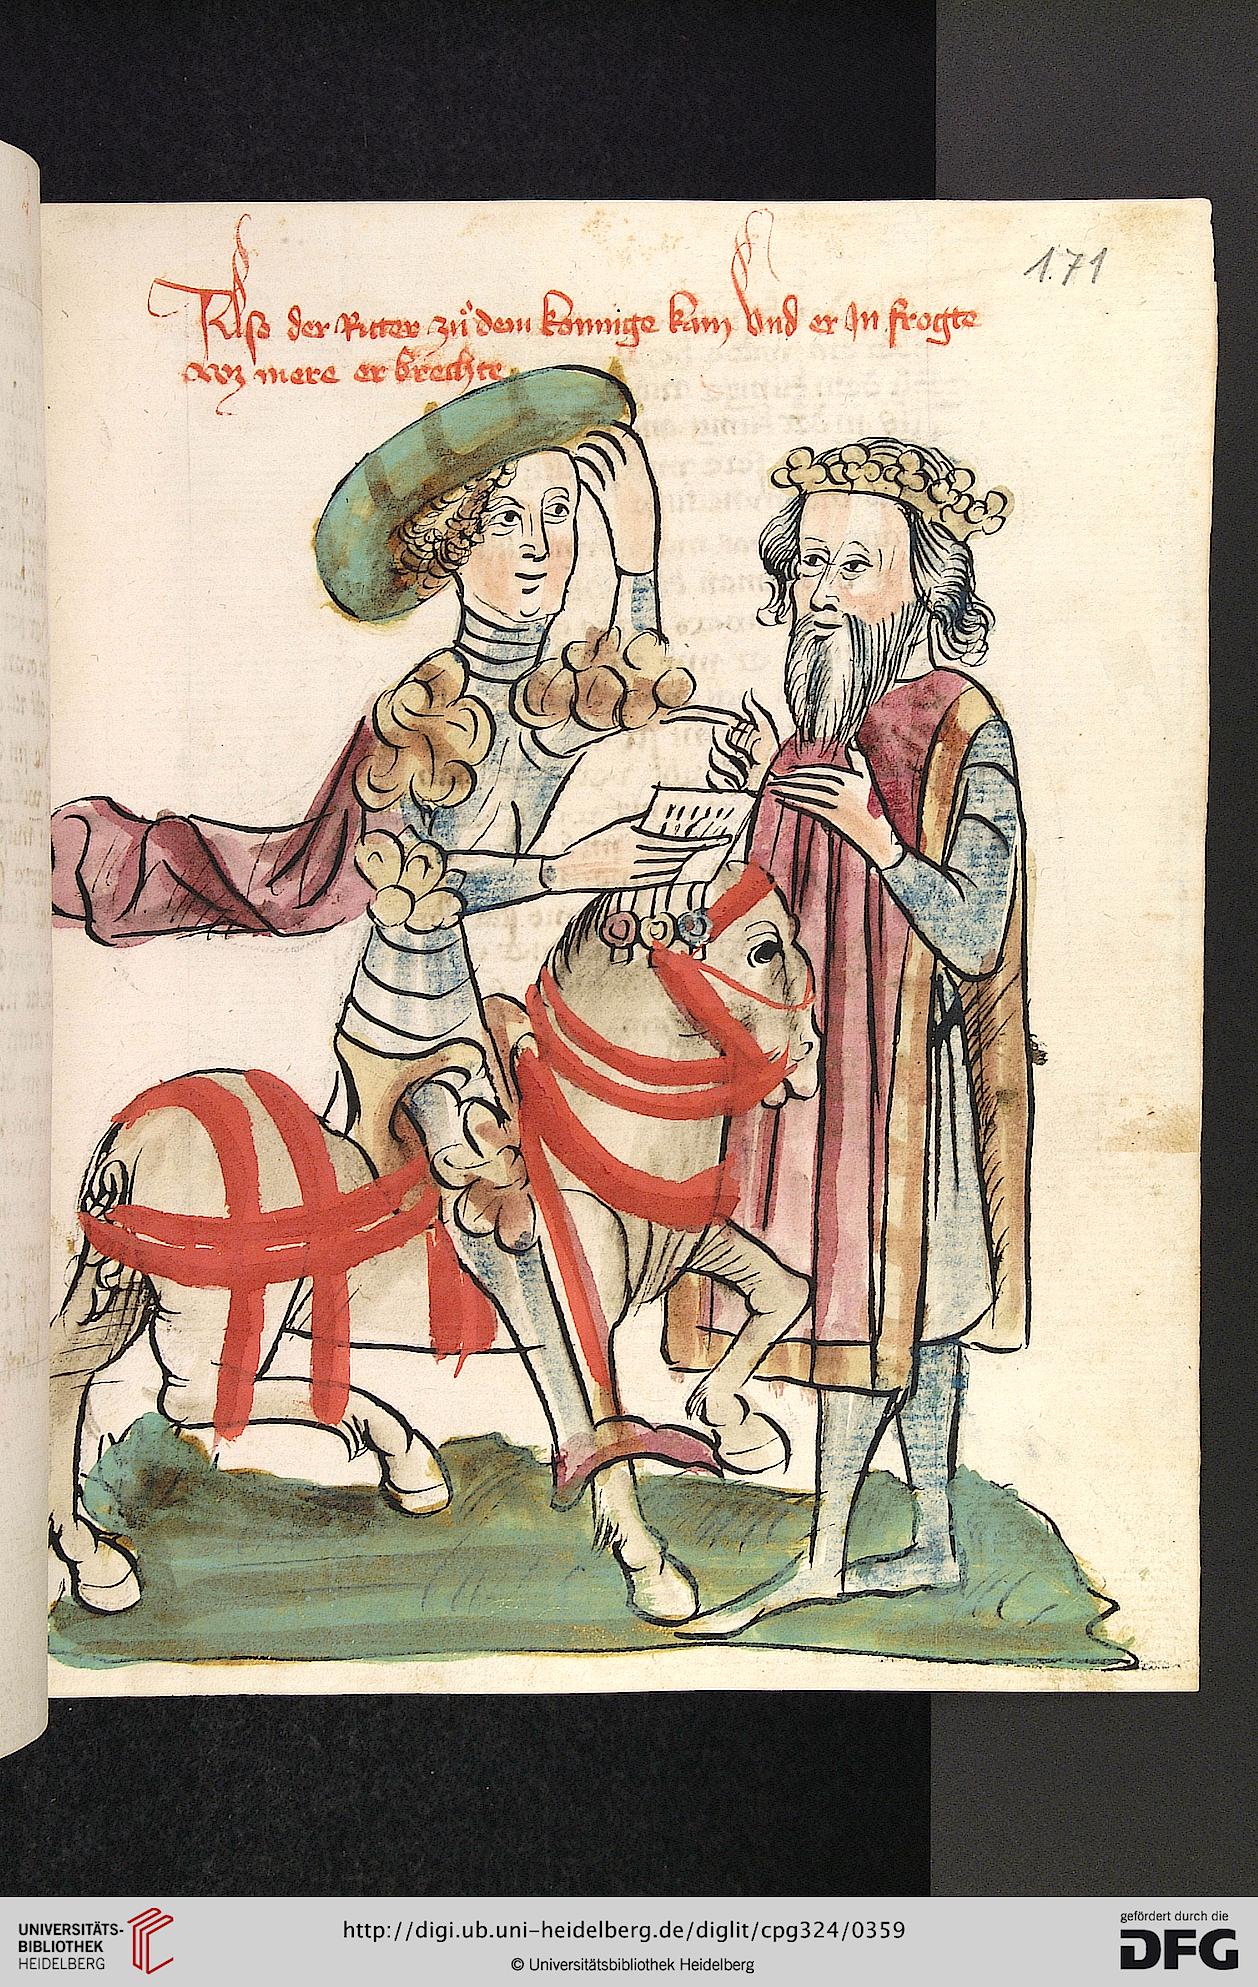 171
Also der Ritter zü dem konnige kam Vnd er Jn frogte
waz mere er brechte
UNIVERSITÄTS-
BIBLIOTHEK
HEIDELBERG
http://digi.ub.uni-heidelberg.de/diglit/cpg324/0359
© Universitätsbibliothek Heidelberg
gefördert durch die
DFG